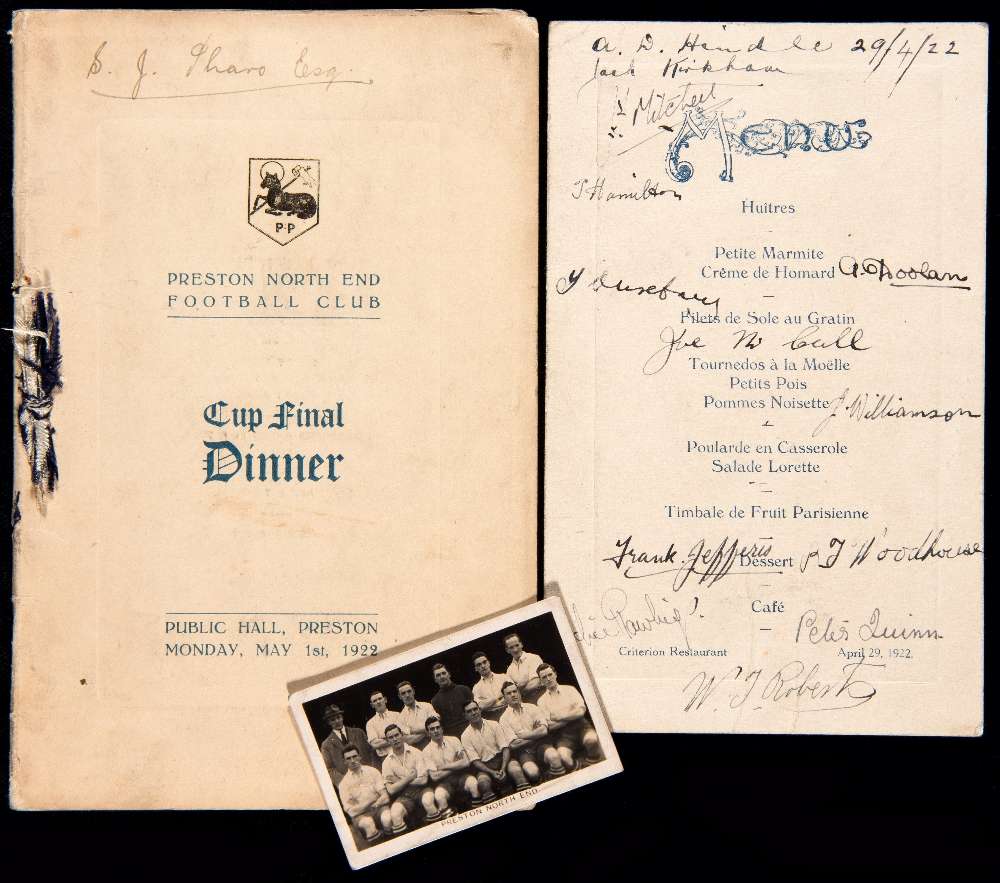 S. J. Pharo Esq.
P·P
PRESTON NORTH END
FOOTBALL CLUB
Cup Final
Dinner
PUBLIC HALL, PRESTON
MONDAY, MAY 1st, 1922
A. D. Hindle 29/4/22
Jack Kirkham
Mitchell
Menus
T Hamilton
Huîtres
Petite Marmite
Crème de Homard A. Doolan
Duxbury
Filets de Sole au Gratin
Joe Mc Call
Tournedos à la Moëlle
Petits Pois
Pommes Noisette J. Williamson
Poularde en Casserole
Salade Lorette
Timbale de Fruit Parisienne
Frank. Jefferis Dessert R T Woodhouse
Café
Rawlings Peter Quinn
Criterion Restaurant April 29, 1922.
W. T. Roberts
PRESTON NORTH END.